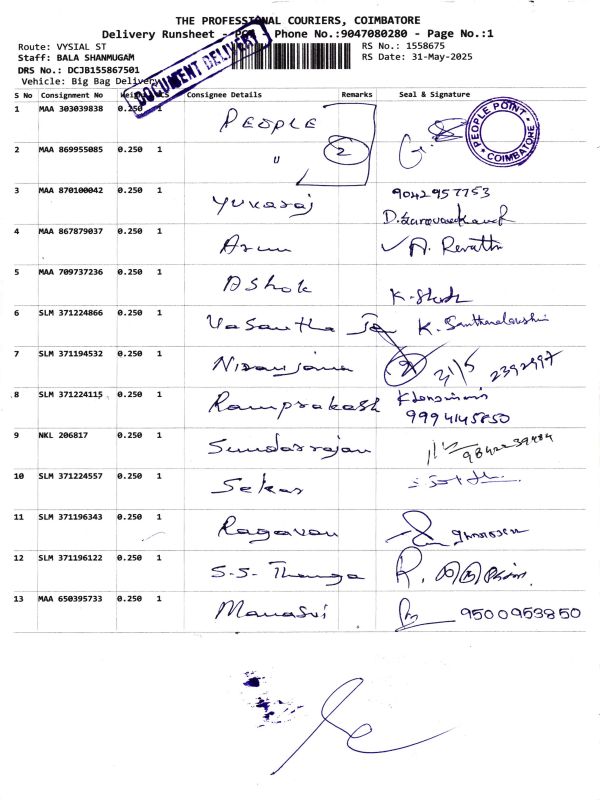 THE PROFESSIONAL COURIERS, COIMBATORE
Delivery Runsheet - POD - Phone No.:9047080280 - Page No.:1
Route: VYSIAL ST RS No.: 1558675
Staff: BALA SHANMUGAM RS Date: 31-May-2025
DRS No.: DCJB155867501
Vehicle: Big Bag Delivery
DOCUMENT DELIVERY
S No Consignment No Weight Consignee Details Remarks Seal & Signature
1 MAA 303039838 0.250 1 PEOPLE
PEOPLE POINT COIMBATORE
2 MAA 869955085 0.250 1 " 2
3 MAA 870100042 0.250 1 Yuvaraj 9042957753
4 MAA 867879037 0.250 1 Arun A. Revathi
5 MAA 709737236 0.250 1 Ashok
6 SLM 371224866 0.250 1 Vasantha
7 SLM 371194532 0.250 1 Niranjana 2 31/5 2392997
8 SLM 371224115 0.250 1 Ramprakash 9994145850
9 NKL 206817 0.250 1 Sundarrajan
10 SLM 371224557 0.250 1 Sekar
11 SLM 371196343 0.250 1 Ragavan
12 SLM 371196122 0.250 1 S.S. Thanga R.
13 MAA 650395733 0.250 1 Manasvi 9500953850